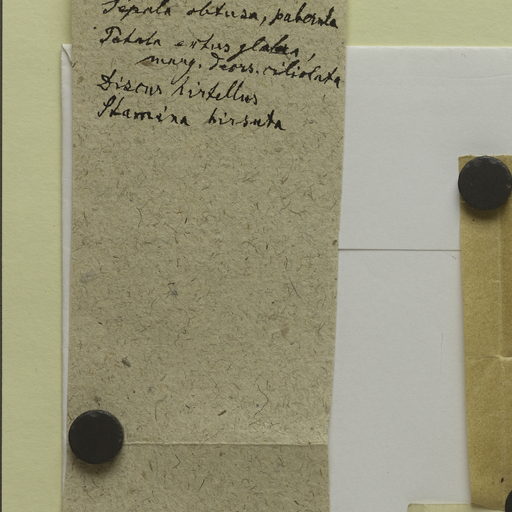 Sepala obtusa, puberula
Petala extus glabra,
marg. deors. ciliolata
Discus hirtellus
Stamina hirsuta